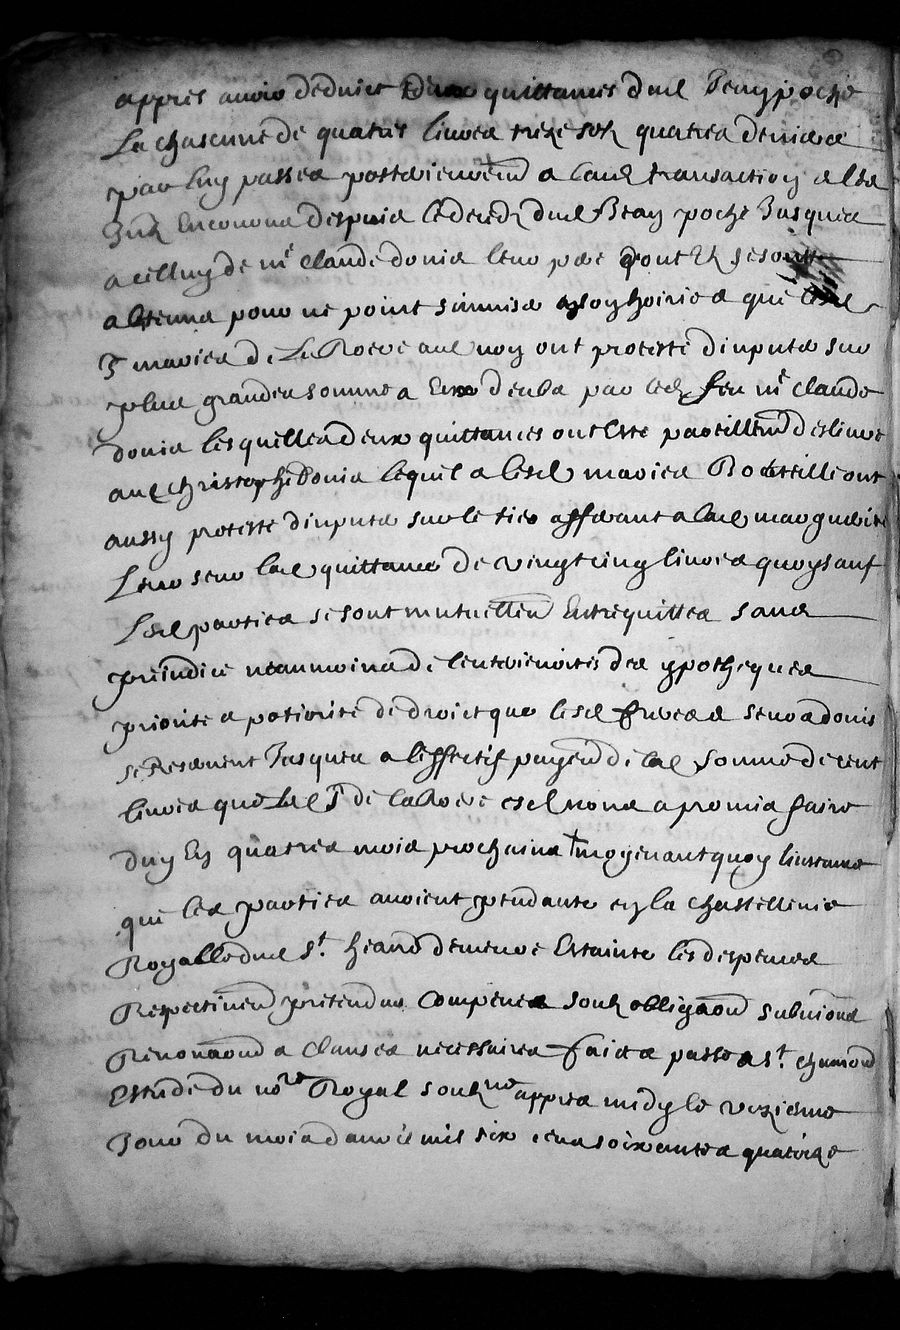 appres avoir deduict deux quittances dud Beny poche
La chascune de quatres livres treze solz quatres deniers
par luy passes posterieurem[ent] a lad transaction a esté
Jusques
a celluy de m^e Claude donis leur pere dont Ilz se sont
abstenus pour ne point s'immiser a son hoirie a que lesd
maries de La Roere aud nom ont proteste d'inputer sur
plus grandes sommes a Eux deubs par led feu m^e Claude
donis lesquelles deux quittances ont Esté pareillem[ent] deslivre
aud Christophe Donis lequel a lesd maries Rocttille ont
aussy proteste d'inputer sur le tier afferant a lad marguerite
Leur seur lad quittance de vingt cinq livres quoy sauf
Lesd parties se sont mutuellem[ent] Entrequittes sans
preiudice neanmoins de l'enterienrités des ypotheques
priorite a potiorite de droict que lesd freres a seurs donis
se Reservent Jusques a l'effectif payem[ent] de lad somme de cent
livres que led Sr de la Roere esd noms a promis faire
d'uy En quatres mois prochains + moyenant quoy l'instance
que les parties avoient pendante en la chastellenie
Royalle dud St. heand demeure Estainte les despences
Respectivem[ent] pretendus Compences soubz obligaon submions
Renonaons a clauses necessaires faict a passe a St. chamond
Estude du no^re Royal soubz^ne appres midy le unzieme
Jour du mois d'avril mil six cens soixantes quatorze